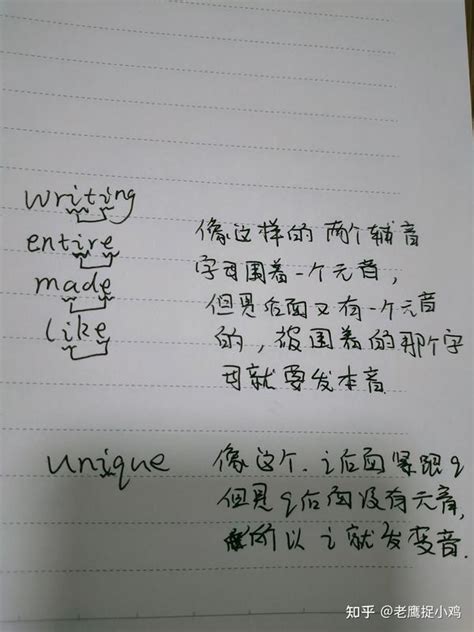 writing
entire
made
like
像这样的两个辅音
字母围着一个元音,
但是后面又有一个元音
的,被围着的那个字
母就要发本音.
unique
像这个.i后面紧跟q
但是q后面没有元音,
所以i就发变音.
知乎 @老鹰捉小鸡